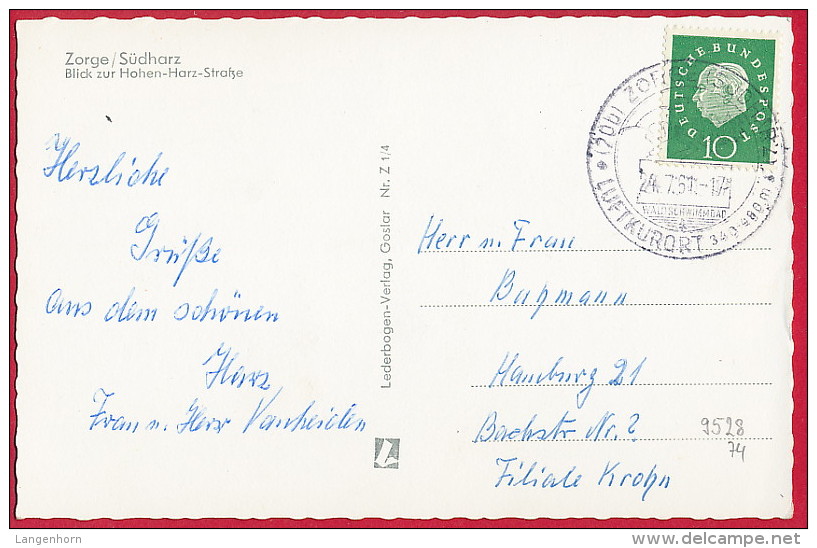 Zorge/Südharz
Blick zur Hohen-Harz-Straße
Herzliche
Grüße
aus dem schönen
Harz
Frau u. Herr Vanheiden
Lederbogen-Verlag, Goslar Nr. Z 1/4
DEUTSCHE BUNDESPOST
10
(20b) ZORGE
24.7.61.-17
WALDSCHWIMMBAD
LUFTKURORT 340-480m
Herr u. Frau
Buhmann
Hamburg 21
Bachstr Nr. ?
Filiale Krohn
9528
74
Langenhorn
delcampe.net